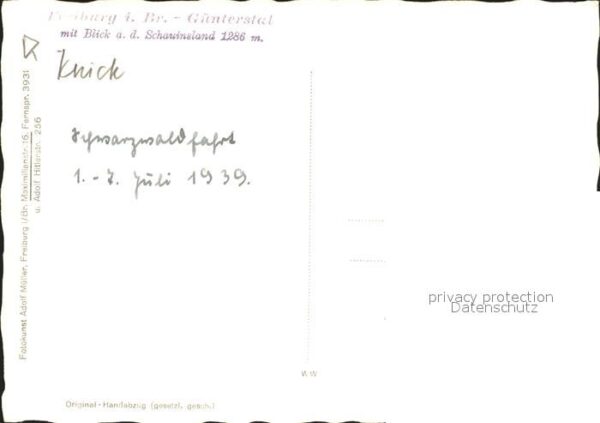 Freiburg i. Br. - Günterstal
mit Blick a. d. Schauinsland 1286 m.
Knick
Schwarzwaldfahrt
1. - 7. Juli 1939.
Fotokunst Adolf Müller, Freiburg i/Br. Maximilianstr. 16, Fernspr. 3931
u. Adolf Hitlerstr. 256
privacy protection
Datenschutz
WW
Original-Handabzug (gesetzl. gesch.)